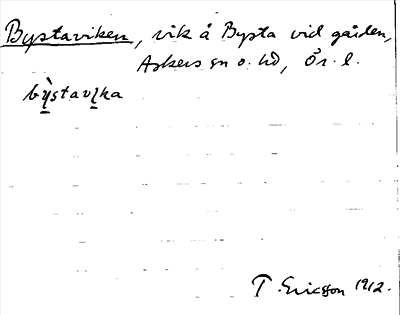 Bystaviken, vik å Bysta vid gården,
Askers sn o. hd, Ör. l.
bỳstavı̱ka
T. Ericsson 1912.